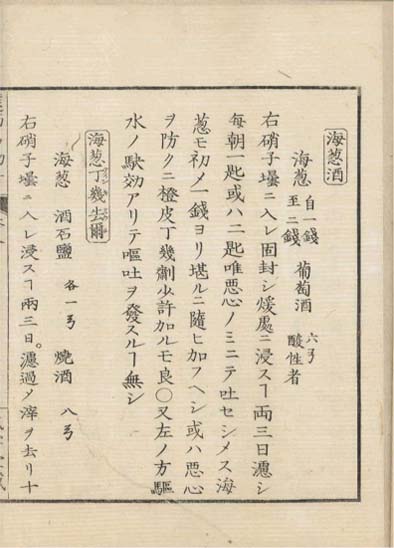 海葱酒
海葱 自一錢至二錢 葡萄酒 六ヲ酸性者
右硝子壜ニ入レ固封シ煖處ニ浸スヿ両三日濾シ
每朝一匙或ハ二匙唯惡心ノミニテ吐セシメス海
葱モ初メ一錢ヨリ堪ルニ隨ヒ加フヘシ或ハ惡心
ヲ防クニ橙皮丁幾劑少許加ルモ良○又左ノ方驅
水ノ駃効アリテ嘔吐ヲ發スルヿ無シ
海葱丁幾去爾
海葱 酒石鹽 各一ヲ 燒酒 八ヲ
右硝子壜ニ入レ浸スヿ兩三日。濾過メ滓ヲ去リ十